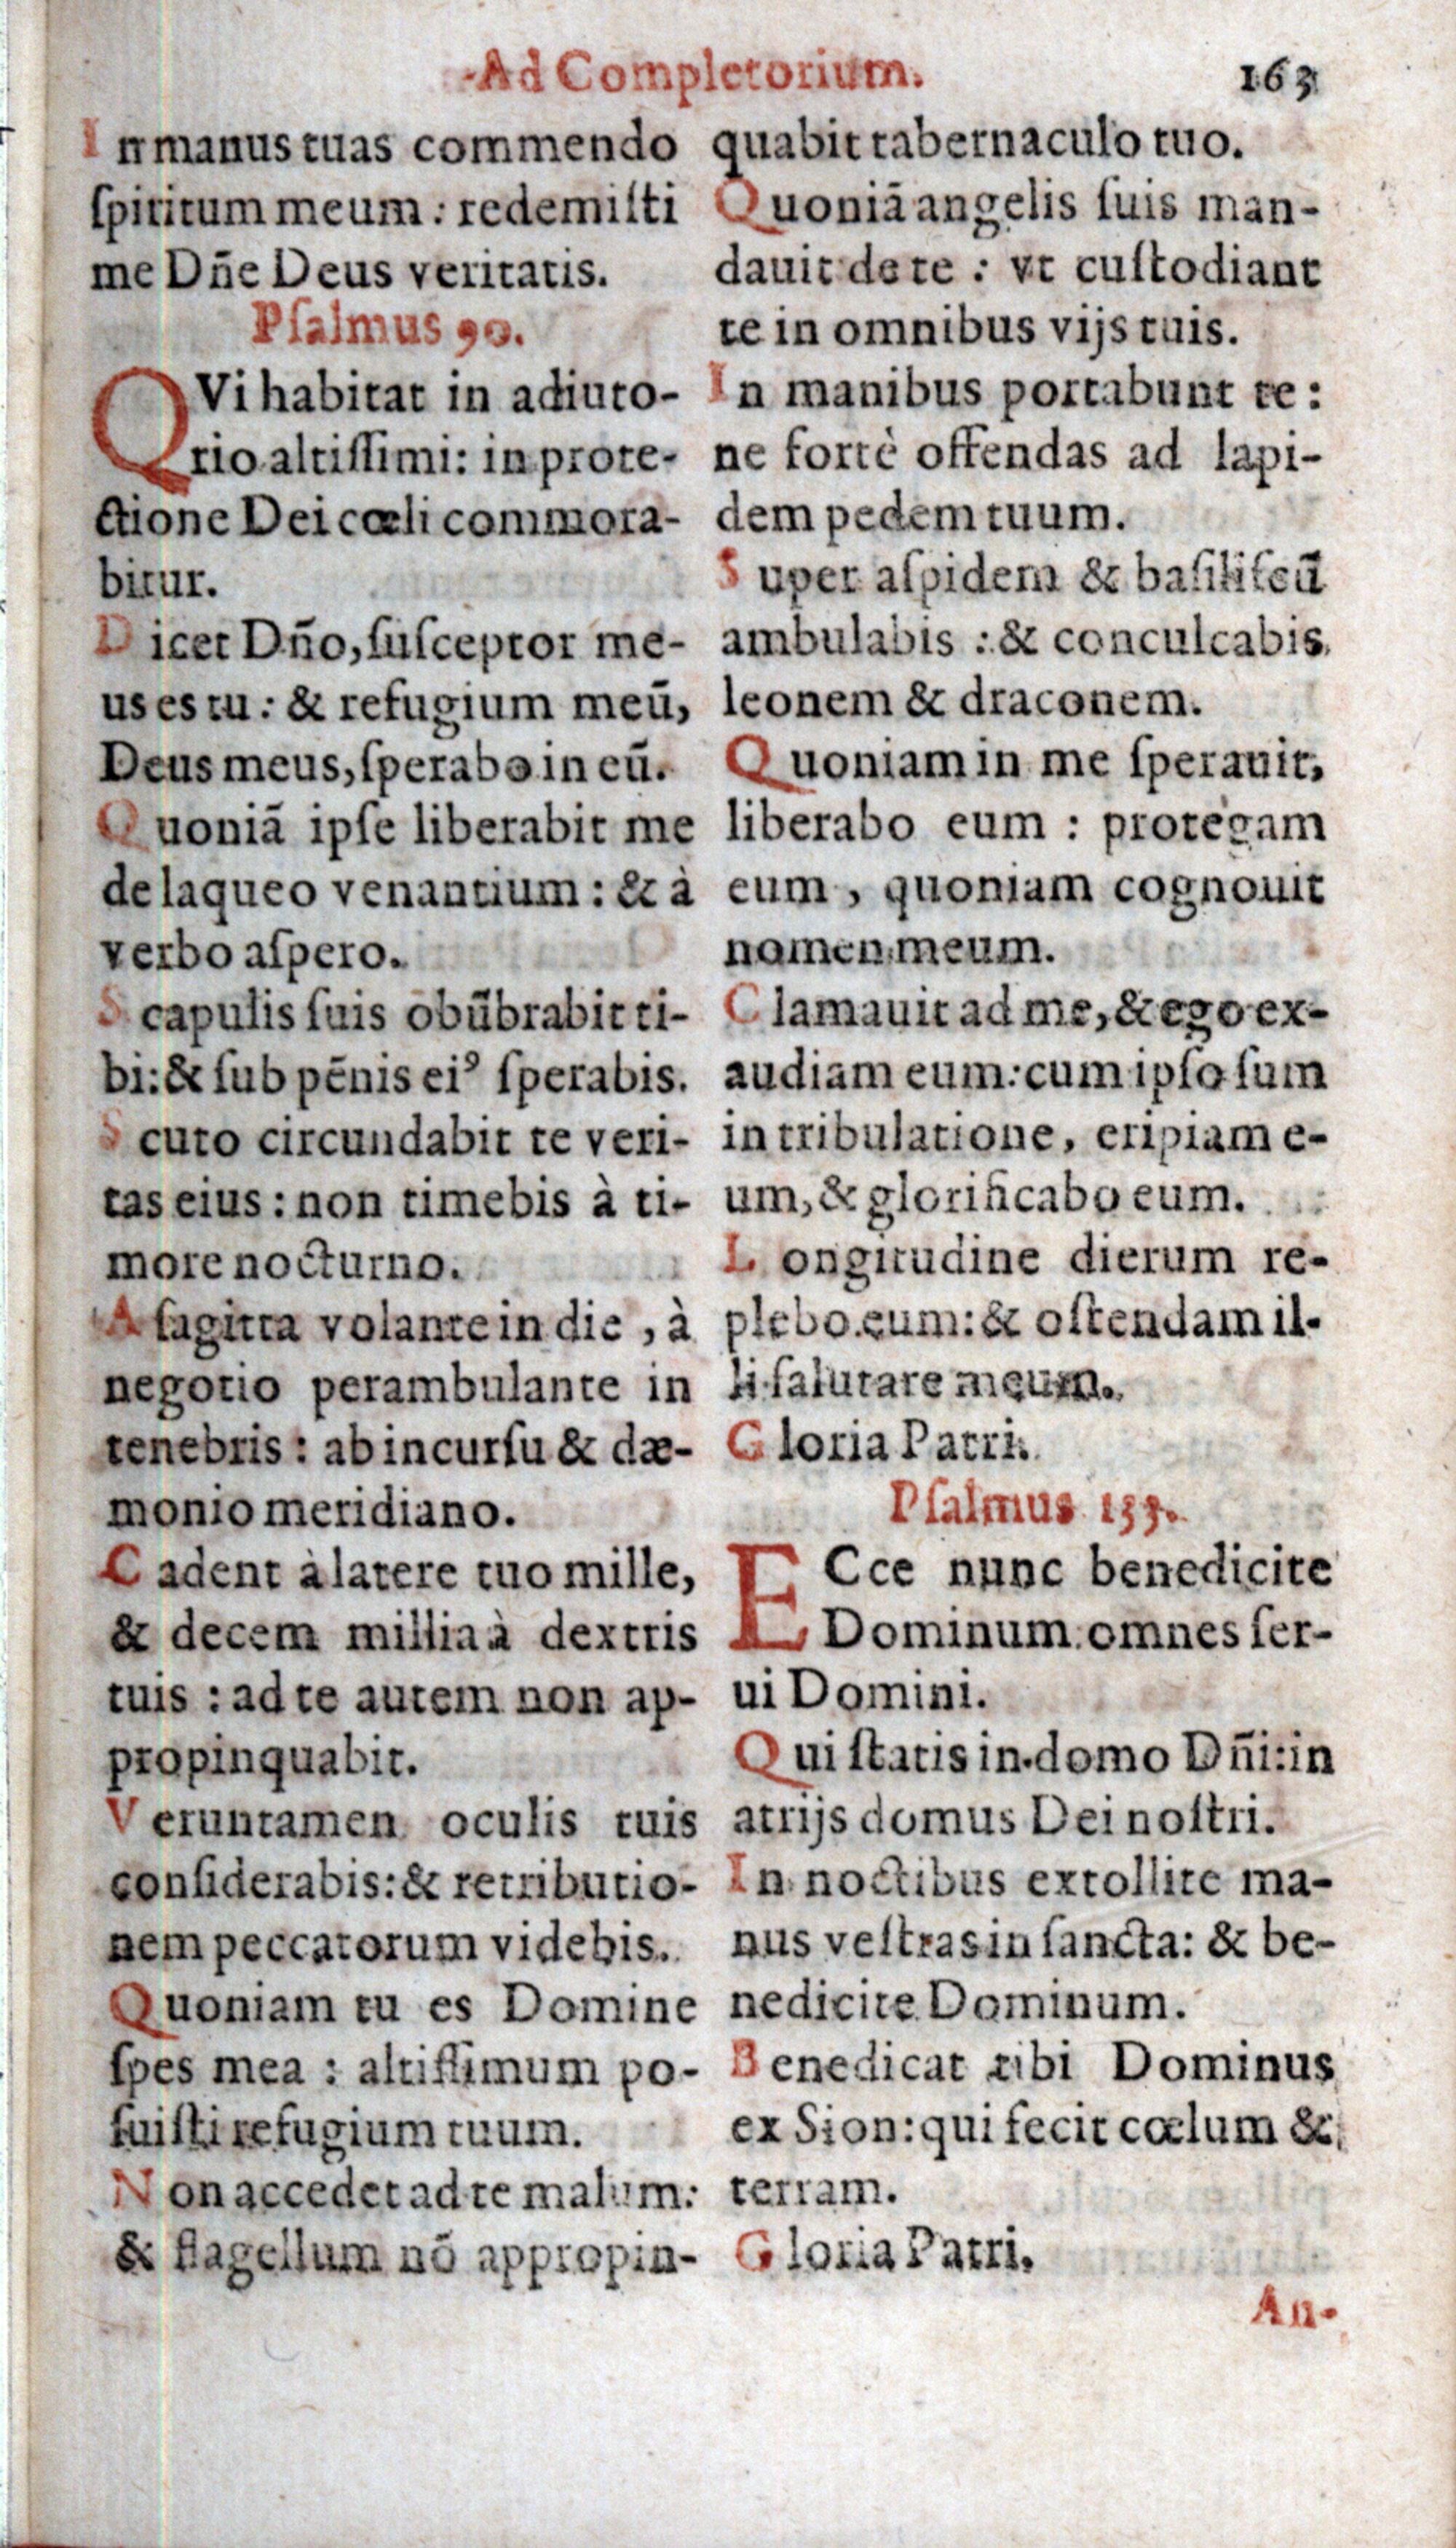 Ad Completorium.
163
In manus tuas commendo
ſpiritum meum : redemiſti
me Dñe Deus veritatis.
Pſalmus 90.
QVi habitat in adiuto-
rio altiſſimi: in prote-
ctione Dei cœli commora-
bitur.
Dicet Dño, ſuſceptor me-
us es tu : & refugium meū,
Deus meus, ſperabo in eū.
Quoniā ipſe liberabit me
de laqueo venantium : & à
verbo aſpero.
Scapulis ſuis obūbrabit ti-
bi: & ſub pēnis eiꝰ ſperabis.
Scuto circundabit te veri-
tas eius : non timebis à ti-
more nocturno.
A ſagitta volante in die , à
negotio perambulante in
tenebris : ab incurſu & dæ-
monio meridiano.
Cadent à latere tuo mille,
& decem millia à dextris
tuis : ad te autem non ap-
propinquabit.
Veruntamen oculis tuis
conſiderabis: & retributio-
nem peccatorum videbis.
Quoniam tu es Domine
ſpes mea : altiſſimum po-
ſuiſti refugium tuum.
Non accedet ad te malum:
& flagellum nō appropin-
quabit tabernaculo tuo.
Quoniā angelis ſuis man-
dauit de te : vt cuſtodiant
te in omnibus vijs tuis.
In manibus portabunt te :
ne fortè offendas ad lapi-
dem pedem tuum.
Super aſpidem & baſiliſcū
ambulabis : & conculcabis
leonem & draconem.
Quoniam in me ſperauit,
liberabo eum : protegam
eum , quoniam cognouit
nomen meum.
Clamauit ad me, & ego ex-
audiam eum: cum ipſo ſum
in tribulatione, eripiam e-
um, & glorificabo eum.
Longitudine dierum re-
plebo eum: & oſtendam il-
li ſalutare meum.
Gloria Patri.
Pſalmus 133.
ECce nunc benedicite
Dominum omnes ſer-
ui Domini.
Qui ſtatis in domo Dñi: in
atrijs domus Dei noſtri.
In noctibus extollite ma-
nus veſtras in ſancta: & be-
nedicite Dominum.
Benedicat tibi Dominus
ex Sion: qui fecit cœlum &
terram.
Gloria Patri.
An-